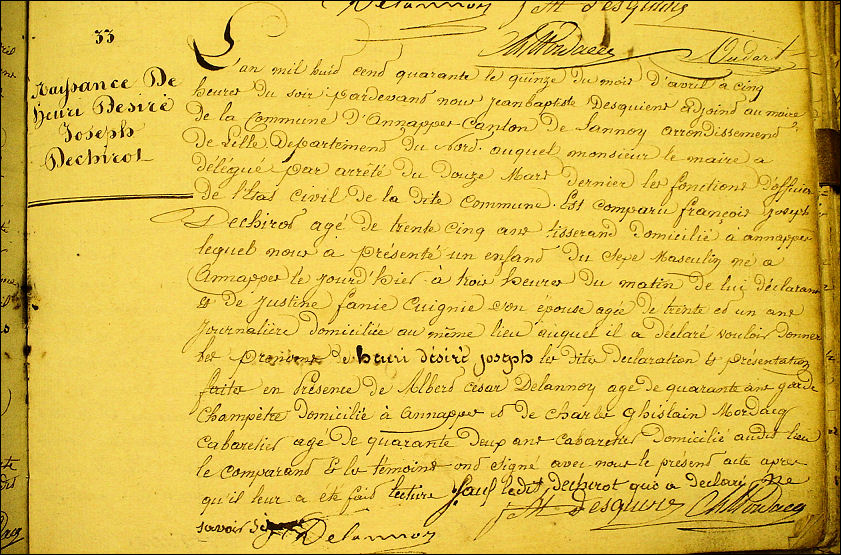 Delannoy
33
Naissance De
henri Desiré
Joseph
Dechirot
L'an mil huid cend quarante le quinze du mois d'avril a cinq
heures du soir pardevand nous jeanbaptiste Desquiens adjoind au maire
de la Commune D'Annappes Canton de Lannoy arrondissemend
de Lille Departemend du Nord auquel monsieur le maire a
délégué par arrêté du Douze Mars dernier les fonctions D'officier
de l'Etat civil de la dite Commune. Est comparu françois joseph
Dechirot agé de trente cinq ans tisserand domicilié à annappes
lequel nous a présenté un enfand du Sexe Masculin né a
Annappes le jourd'hier à trois heures du matin de lui déclarant
& de Justine fanie Cuignie son épouse agée de trente et un ans
journalière domiciliée au même lieu auquel il a déclaré vouloir donner
les prenoms de henri désiré joseph les dites declaration & présentation
faites en Présence de Alberd César Delannoy agé de quarante ans garde
Champêtre domicilié à annappes & de charles Ghislain Mordacq
Cabaretier agé de quarante deux ans cabaretier Domicilié audit lieu
le comparand & les témoins ond signé avec nous le présend acte après
qu'il leur a été faid lecture sauf ledit dechirot qui a déclaré ne
savoir
Delannoy
Mordacq